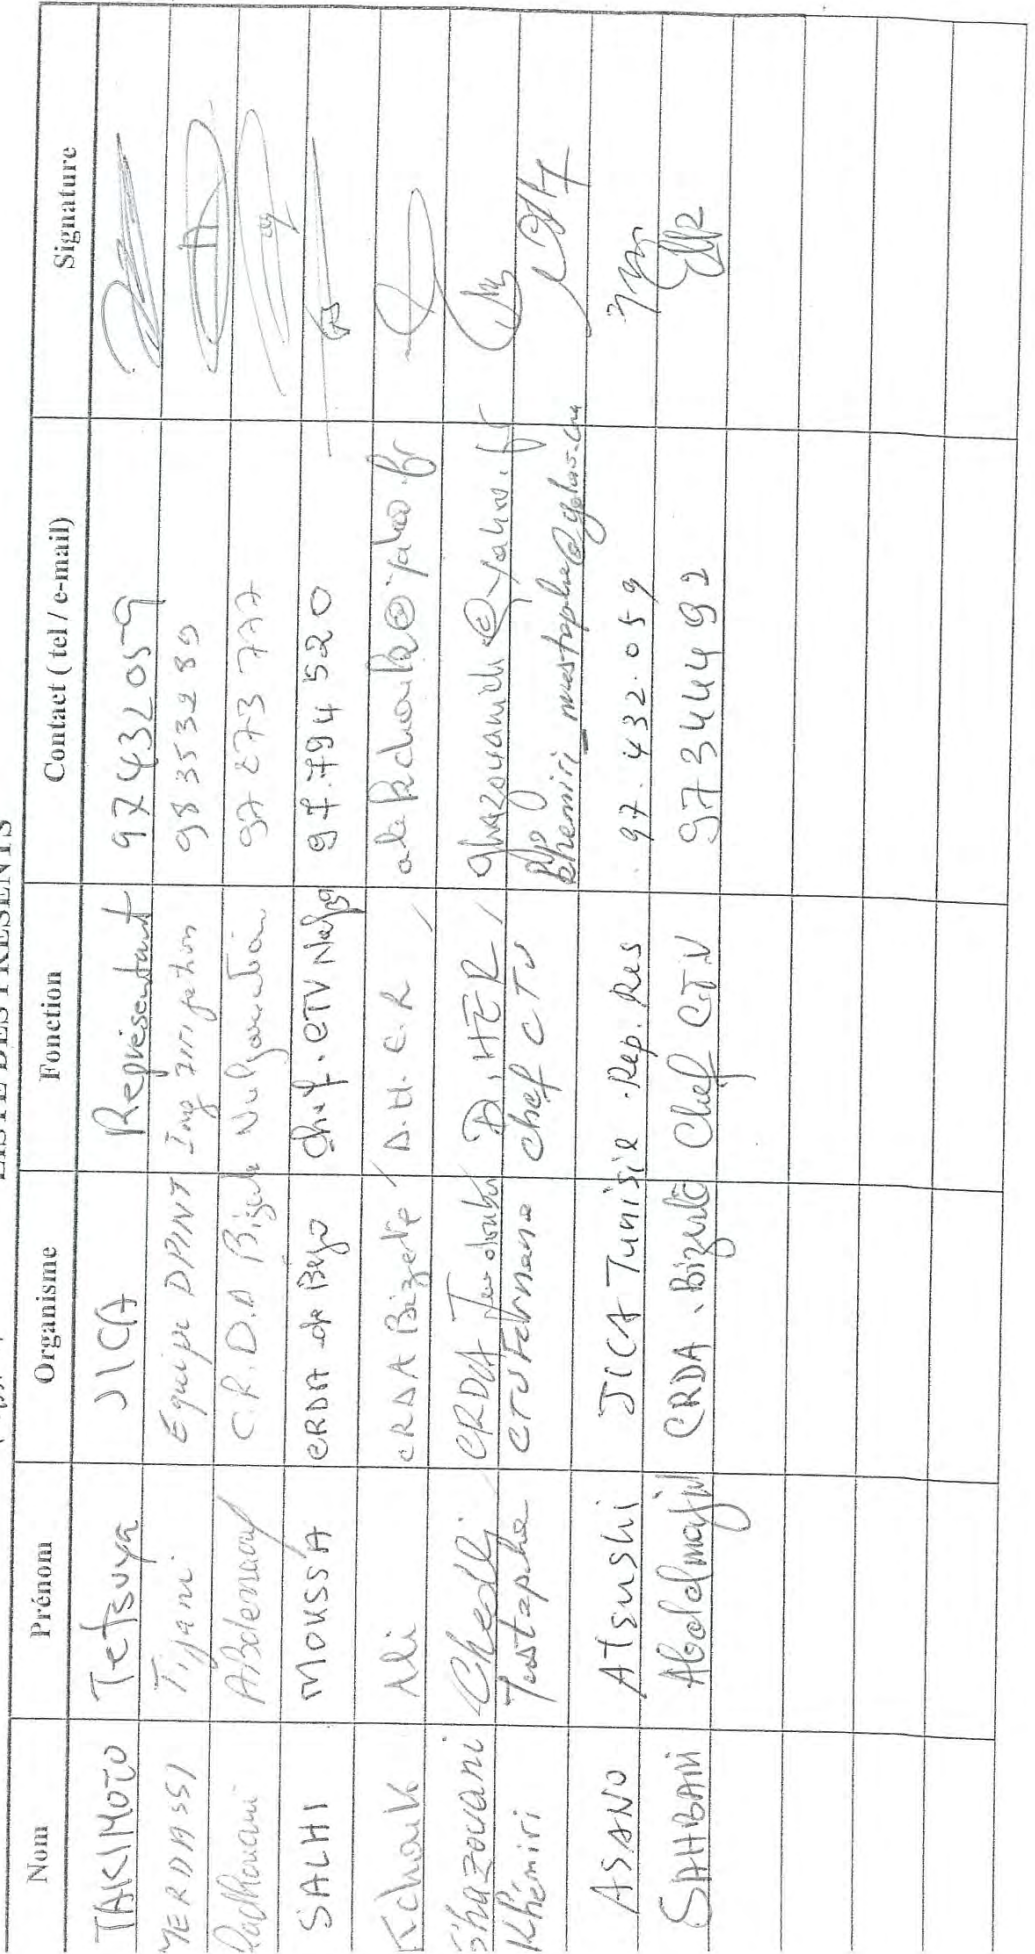 LISTE DES PRESENTS
Nom Prénom Organisme Fonction Contact ( tel / e-mail) Signature
TAKIMOTO Tetsuya JICA Représentant 97432059
MERDASSI Tijani Equipe DPINT Ing Irrigation 98353289
Radhouani Abderraouf C.R.D.A Bizerte Vulgarisation 97 273 777
SALHI MOUSSA CRDA de Beja Chef. CTV Nefza 97.794520
Kchouk Ali CRDA Bizerte D.H.E.R ali kchouk@yahoo.fr
Ghazouani Chedli CRDA D.HER ghazouanich@yahoo.fr
Khémiri CTV Fernana chef CTV khemiri_mustapha@yahoo.com
ASANO Atsushi JICA Tunisie Rep. Res 97.432.059
SAHBANI Abdelmajid CRDA Bizerte Chef CTV 97344492